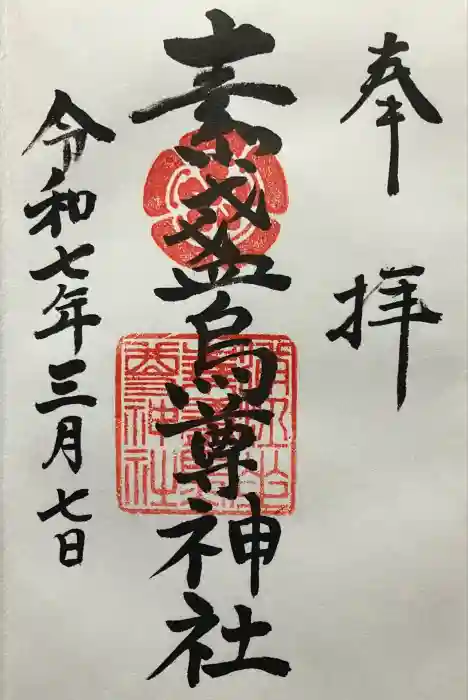 奉拝
素盞烏尊神社
令和七年三月七日